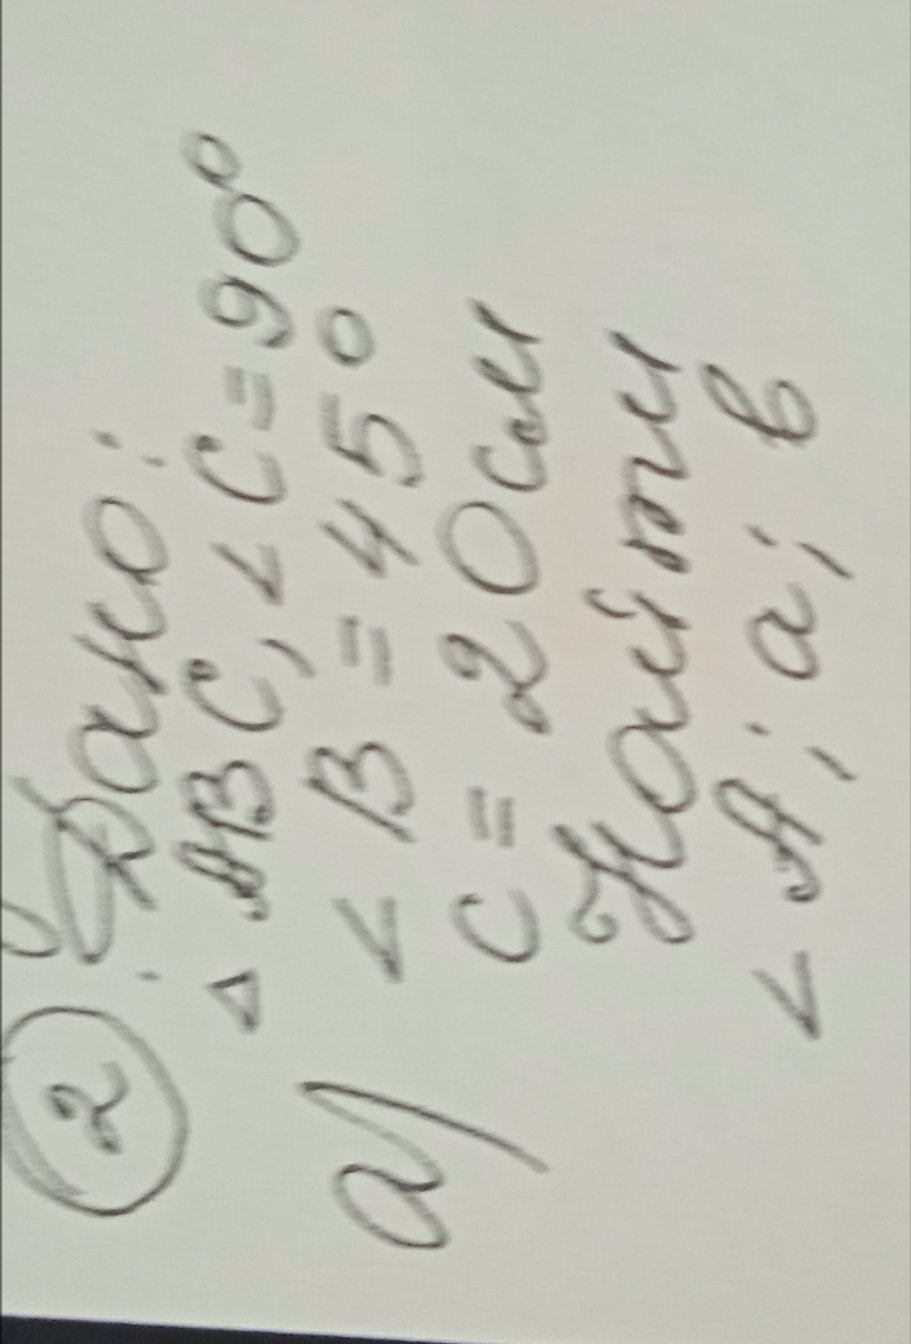 2 Дано:
△ ABC, ∠ C = 90°
а) ∠ B = 45°
c = 20 см
Найти
∠ A; a; в